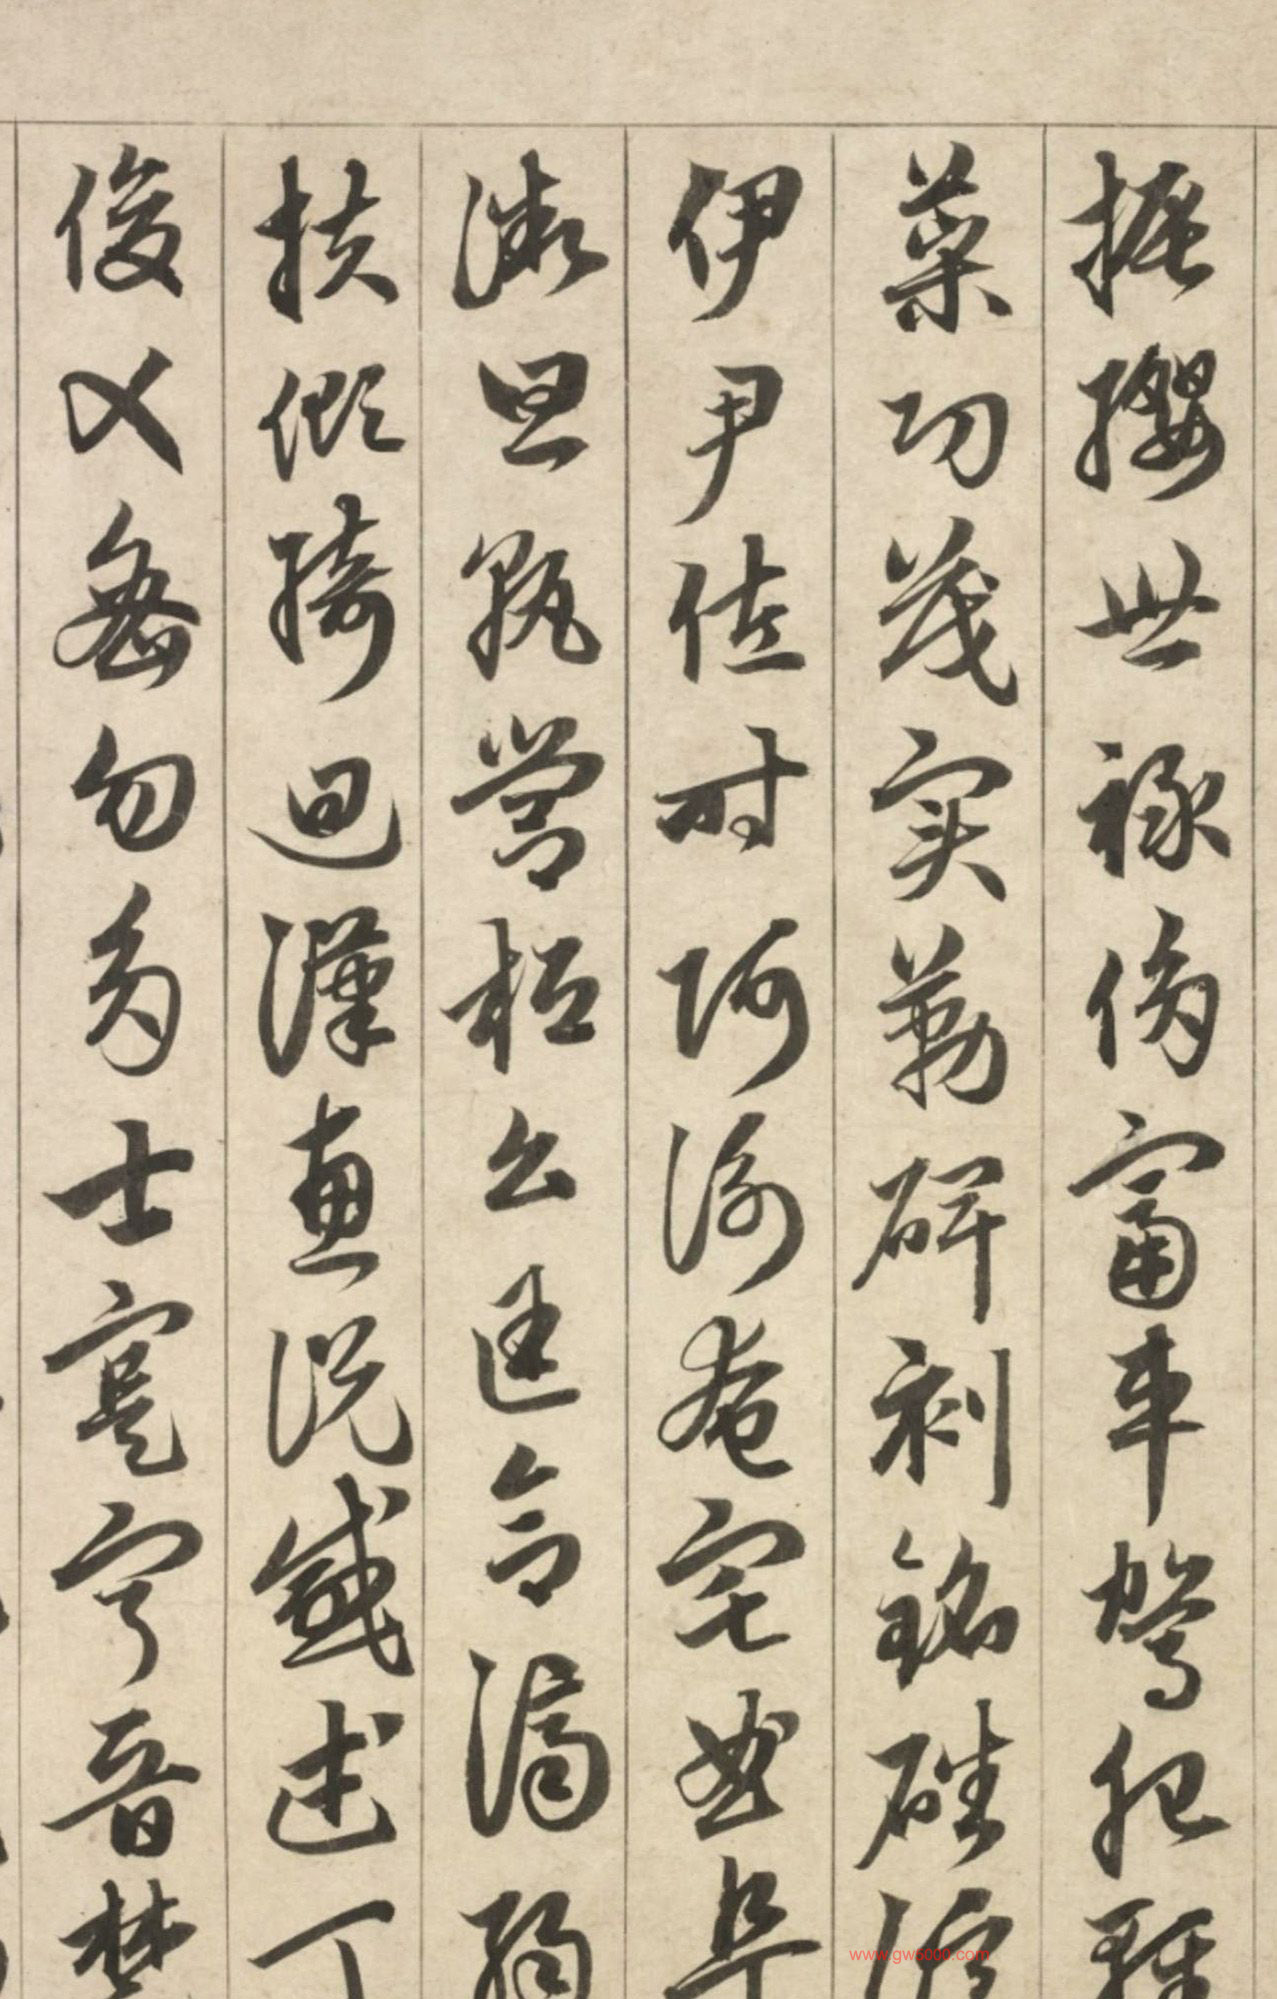 振纓世祿侈富車駕肥輕
策功茂實勒碑刻銘磻溪
伊尹佐時阿衡奄宅曲阜
微旦孰營桓公匡合濟弱
扶傾綺迴漢惠說感武丁
俊乂密勿多士寔寧晉楚
www.gw5000.com